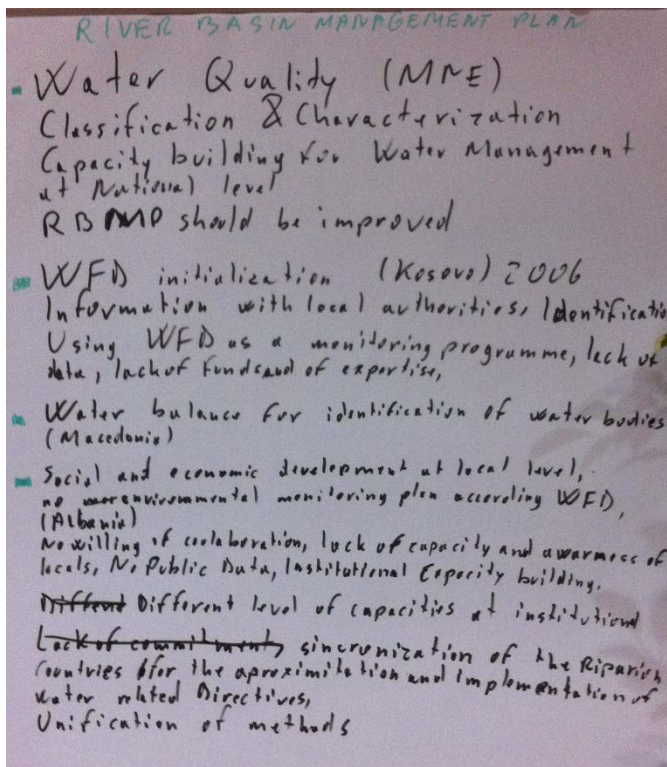 RIVER BASIN MANAGEMENT PLAN
- Water Quality (MNE)
Classification & Characterization
Capacity building for Water Management
at National level
RBMP should be improved
- WFD initialization (Kosovo) 2006
Information with local authorities, Identificatio
Using WFD as a monitoring programme, lack of
data, lack of funds and of expertise,
- Water balance for identification of water bodies
(Macedonia)
- Social and economic development at local level,
no environmental monitoring plan according WFD,
(Albania)
No willing of coolaboration, lack of capacity and awarness of
locals, No Public Data, Institutional Capacity building.
Different Different level of capacities at institutional
Lack of commitment, sincronization of the Riparian
Countries for the aproximitation and implementation of
water related Directives,
Unification of methods